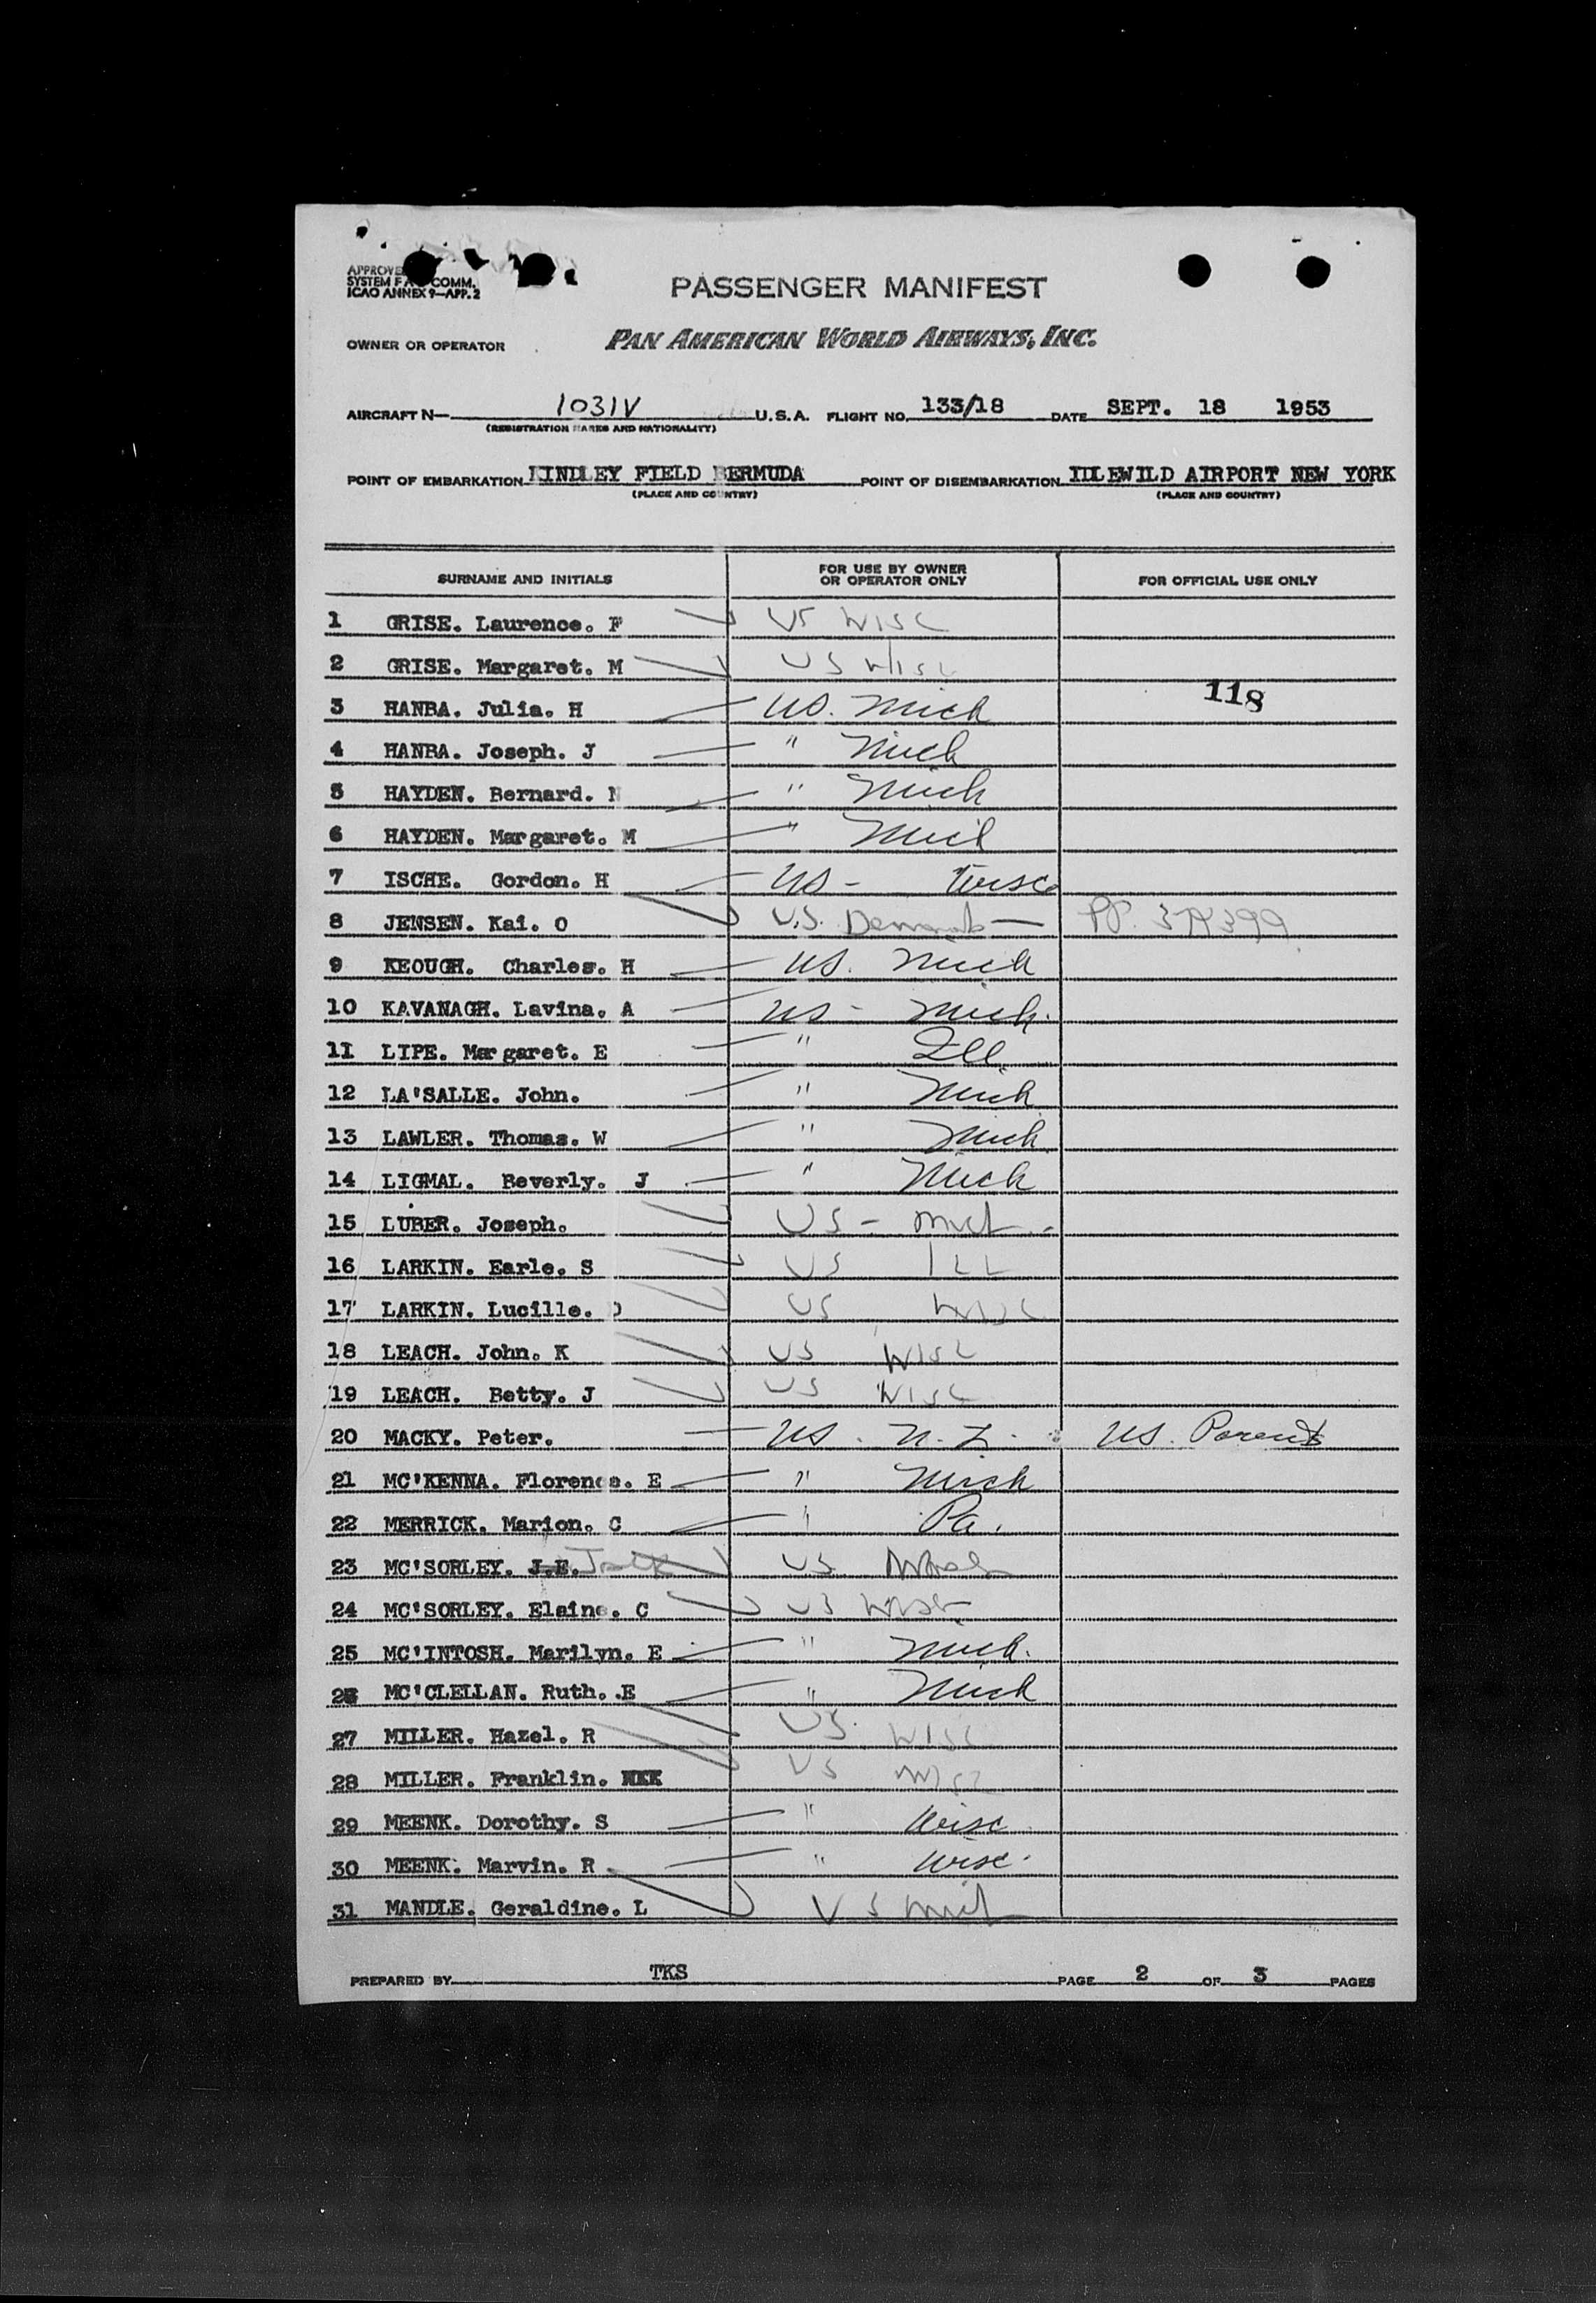 APPROVE
SYSTEM F A COMM.
ICAO ANNEX 9—APP. 2
PASSENGER MANIFEST
OWNER OR OPERATOR PAN AMERICAN WORLD AIRWAYS, INC.
AIRCRAFT N— 1031V U.S.A. FLIGHT NO. 133/18 DATE SEPT. 18 1953
(REGISTRATION MARKS AND NATIONALITY)
POINT OF EMBARKATION KINDLEY FIELD BERMUDA POINT OF DISEMBARKATION IDLEWILD AIRPORT NEW YORK
(PLACE AND COUNTRY) (PLACE AND COUNTRY)
SURNAME AND INITIALS FOR USE BY OWNER OR OPERATOR ONLY FOR OFFICIAL USE ONLY
1 GRISE. Laurence. F US WISC
2 GRISE. Margaret. M US WISC
118
3 HANBA. Julia. H US. Mich
4 HANBA. Joseph. J " Mich
5 HAYDEN. Bernard. N " Mich
6 HAYDEN. Margaret. M " Mich
7 ISCHE. Gordon. H US - Wisc
8 JENSEN. Kai. O U.S. Denmark — PP.
9 KEOUGH. Charles. H US. Mich
10 KAVANAGH. Lavina. A US - Mich.
11 LIPE. Margaret. E " Ill
12 LA'SALLE. John. " Mich
13 LAWLER. Thomas. W " Mich
14 LIGMAL. Beverly. J " Mich
15 LUBER. Joseph. US - Mich -
16 LARKIN. Earle. S US ILL
17 LARKIN. Lucille. US WISC
18 LEACH. John. K US WISC
19 LEACH. Betty. J US WISC
20 MACKY. Peter. US. N. Z. US. Parents
21 MC'KENNA. Florence. E " Mich
22 MERRICK. Marion. C " Pa.
23 MC'SORLEY. J.E. Jack US
24 MC'SORLEY. Elaine. C US
25 MC'INTOSH. Marilyn. E " Mich.
26 MC'CLELLAN. Ruth. E " Mich
27 MILLER. Hazel. R US. WISC
28 MILLER. Franklin. US WISC
29 MEENK. Dorothy. S " Wisc
30 MEENK. Marvin. R " Wisc.
31 MANDLE. Geraldine. L US Mich
PREPARED BY TKS PAGE 2 OF 3 PAGES